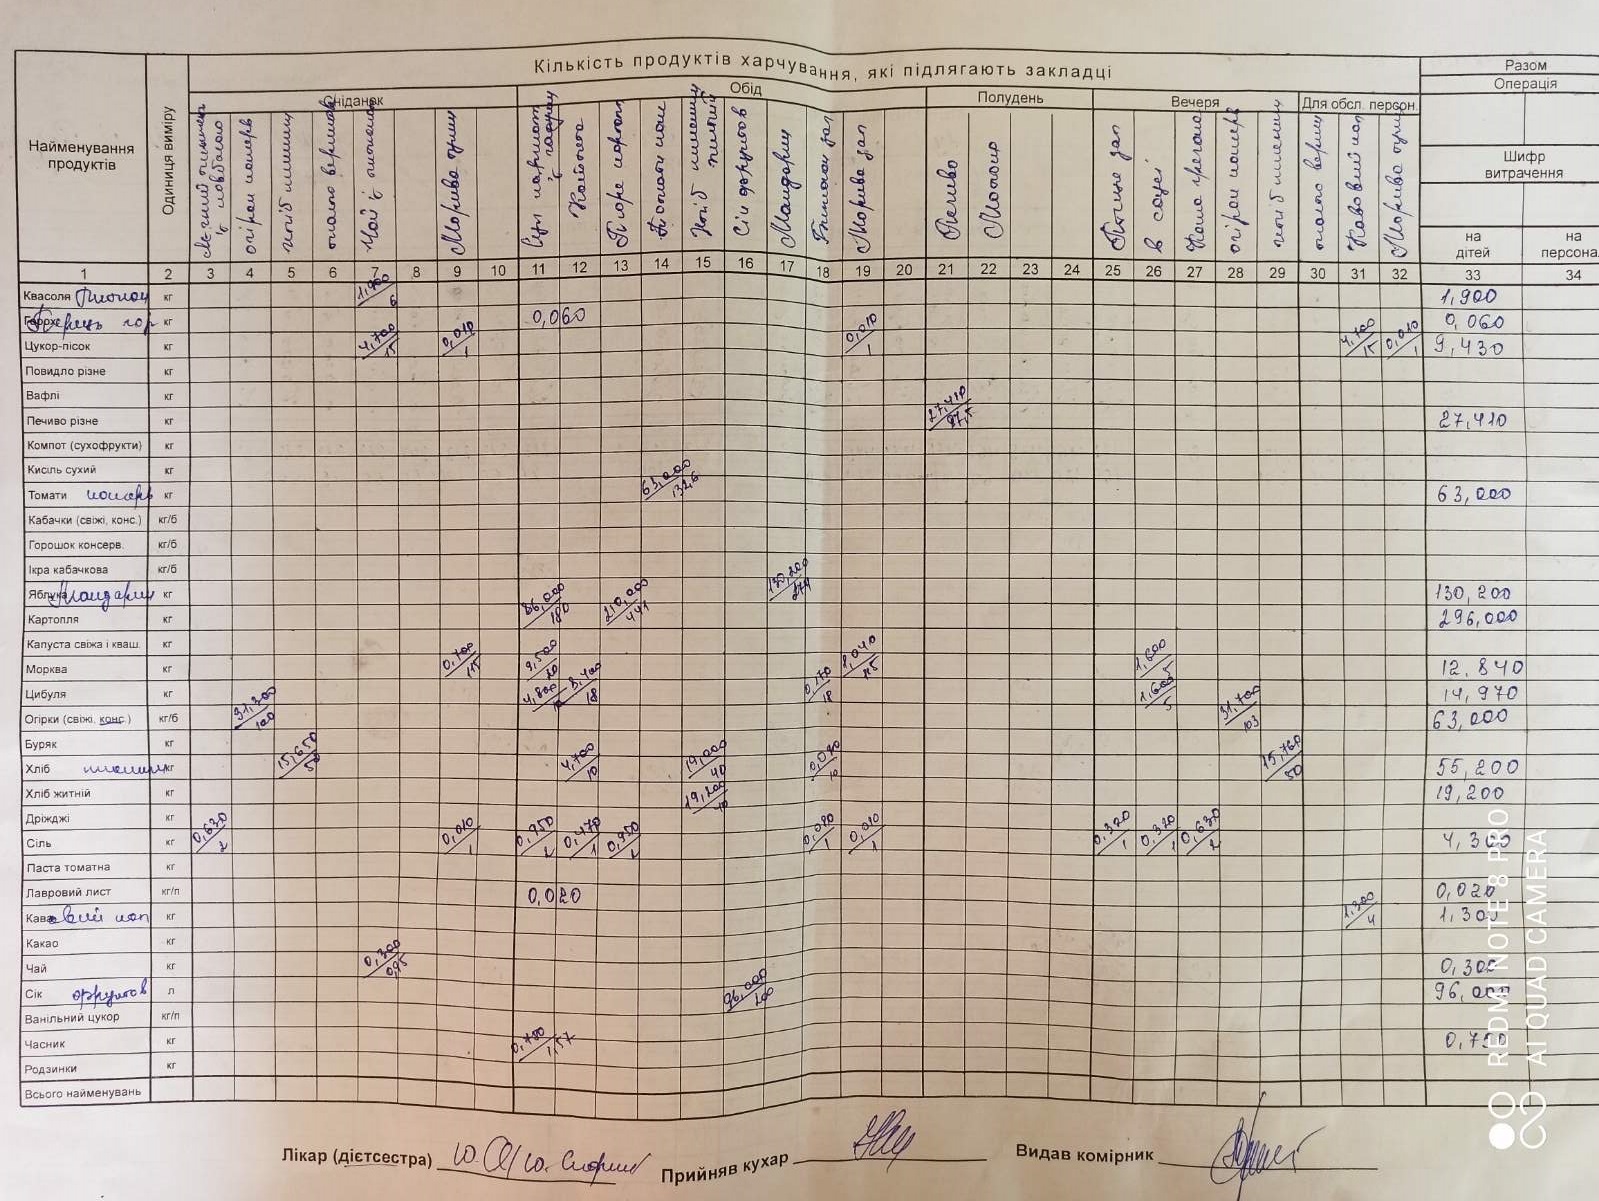 Кількість продуктів харчування, які підлягають закладці
Разом
Операція
Шифр витрачення
на дітей
на персона
Найменування продуктів
Одиниця виміру
Сніданок
Обід
Полудень
Вечеря
Для обсл. персон.
огірки консерв
хліб пшенич
Чай з лимоном
Морква туш
Котлета
Пюре картоп
Хліб пшенич житній
Сік фруктов
Мандарин
Морква зап
Печиво
Молоко
в соусі
огірки консерв
хліб пшенич
Кавовий нап
Морква туш
1 2 3 4 5 6 7 8 9 10 11 12 13 14 15 16 17 18 19 20 21 22 23 24 25 26 27 28 29 30 31 32 33 34
Квасоля Лимон кг 1,900/6 1,900
Горох Перець гор кг 0,060 0,060
Цукор-пісок кг 4,700/15 0,010/1 0,010/1 4,700/15 0,010/1 9,430
Повидло різне кг
Вафлі кг
Печиво різне кг 27,410/87,5 27,410
Компот (сухофрукти) кг
Кисіль сухий кг
Томати консерв кг 63,000/132,6 63,000
Кабачки (свіжі, конс.) кг/б
Горошок консерв. кг/б
Ікра кабачкова кг/б
Яблука Мандарин кг 130,200/274 130,200
Картопля кг 86,000/180 210,000/441 296,000
Капуста свіжа і кваш. кг
Морква кг 0,700/15 9,500/20 1,600/5 12,840
Цибуля кг 4,800 8,400/18 0,170/18 1,600/5 14,970
Огірки (свіжі, конс.) кг/б 31,300/100 31,700/103 63,000
Буряк кг
Хліб пшенич кг 15,650/50 4,700/10 19,000/40 15,760/50 55,200
Хліб житній кг 19,200/40 19,200
Дріжджі кг
Сіль кг 0,630/2 0,010/1 0,950/2 0,470/1 0,950/2 0,010/1 0,320/1 0,320/1 0,630/2 4,300
Паста томатна кг
Лавровий лист кг/п 0,020 0,020
Кавовий нап кг 1,300/4 1,300
Какао кг
Чай кг 0,300/0,95 0,300
Сік фруктов л 96,000/200 96,000
Ванільний цукор кг/п
Часник кг 0,750/1,57 0,750
Родзинки кг
Всього найменувань
Лікар (дієтсестра)
Прийняв кухар
Видав комірник
REDMI NOTE 8 PRO
AI QUAD CAMERA